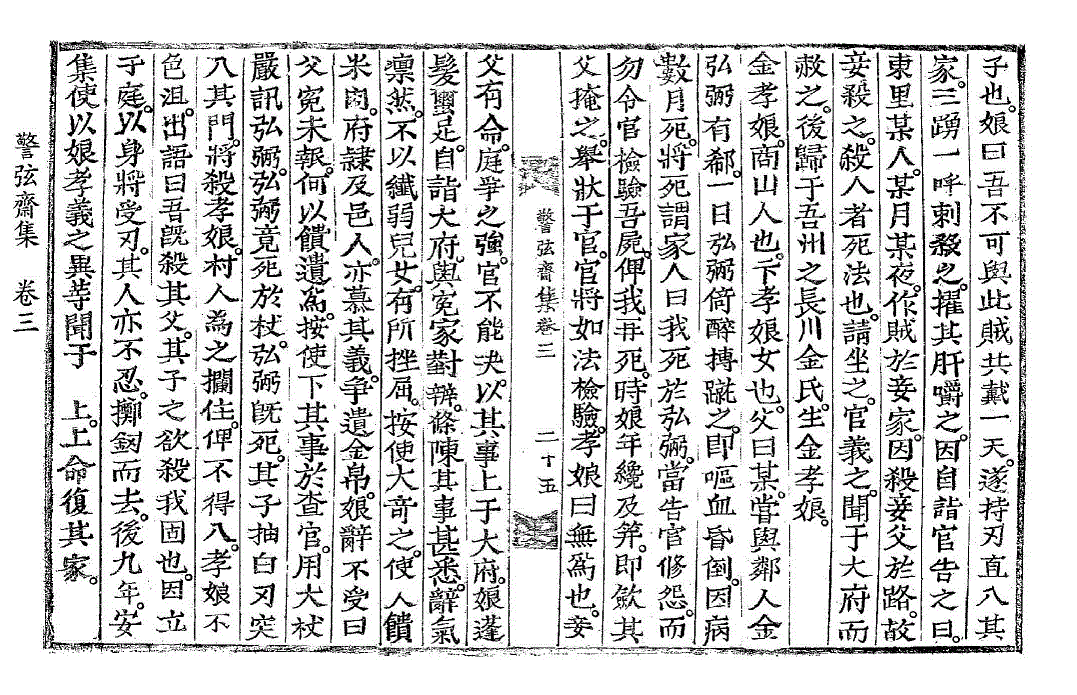 子也。娘曰吾不可與此賊共戴一天。遂持刃直入其
家。三踴一呼刺殺之。擢其肝嚼之。因自詣官告之曰。
東里某人。某月某夜。作賊於妾家。因殺妾父於路。故
妾殺之。殺人者死法也。請坐之。官義之。聞于大府而
赦之。後歸于吾州之長川金氏。生金孝娘。
金孝娘。商山人也。下孝娘女也。父曰某。嘗與鄰人金
弘弼有郗。一日弘弼倚醉搏蹴之。卽嘔血昏倒。因病
數月死。將死謂家人曰我死於弘弼。當告官修怨。而
勿令官檢驗吾屍。俾我再死。時娘年纔及笄。卽斂其
父掩之。擧狀于官。官將如法檢驗。孝娘曰無爲也。妾
警弦齋集卷三 二十五
父有命。庭爭之強。官不能決。以其事上于大府。娘蓬
髮璽足。自詣大府。與冤家對辨。條陳其事甚悉。辭氣
凜然。不以纖弱兒女。有所挫屈。按使大奇之。使人饋
米肉。府隷及邑人。亦慕其義。爭遺金帛。娘辭不受曰
父冤未報。何以饋遺爲。按使下其事於查官。用大杖
嚴訊弘弼。弘弼竟死於杖。弘弼旣死。其子抽白刃突
入其門。將殺孝娘。村人爲之攔住。俾不得入。孝娘不
色沮。出語曰吾旣殺其父。其子之欲殺我固也。因立
于庭。以身將受刃。其人亦不忍。擲劒而去。後九年。安
集使以娘孝義之異等聞于 上。上命復其家。
警弦齋集 卷三